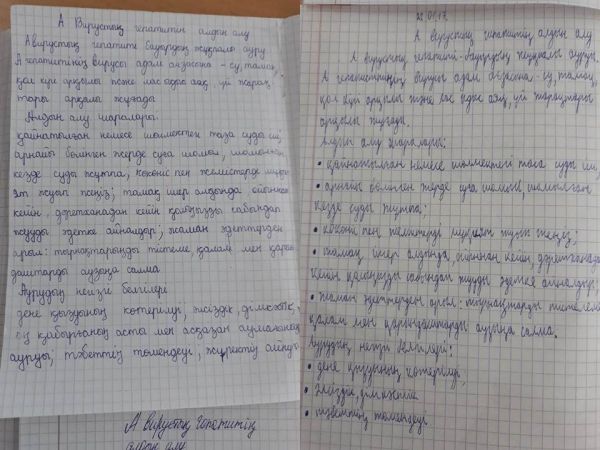 А Вирустық гепатитің алдын алу
А вирустық гепатиті бауырдың жұқпалы ауру.
А гепатитінің вирусы адам ағзасына - су, тамақ,
қол күн арқылы және лас ыдыс аяқ, үй жараq
тары арқылы жұғады
Алдын алу шаралары:
қайнатылған немесе шөлмектен таза суды іш;
арнайы бөлінген жерде суға шомыл, шомылған
кезде суды жұтпа, көкөніс пен жемістерді мұқи
ят жуып жеңіз; тамақ ішер алдында ойыннан
кейін, дәретханадан кейін қолыңызды сабындап
жууды әдетке айналдыр; жаман әдеттерден
арыл: тырнақтарыңды тістеме, қалам мен қарын
даштарды аузыңа салма
Аурудың негізгі белгілері
дене қызуының көтерілуі, әлсіздік, дімкәстік,
оң қабырғаның асты мен асқазан аумағының
ауруы, тәбеттің төмендеуі, жүректің айнуы
А вирустық гепатитің
алдын алу
А вирустық гепатитің алдын алу
А вирустық гепатиті - бауырдың жұқпалы ауруы.
А гепатитінің вирусы адам ағзасына - су, тамақ,
қол күн арқылы және лас ыдыс аяқ, үй жарақтары
арқылы жұғады.
Алдын алу шаралары:
• қайнатылған немесе шөлмектегі таза суды іш,
• арнайы бөлінген жерде суға шомыл, шомылған
кезде суды жұтпа;
• көкөніс пен жемістерді мұқият жуып жеңіз;
• тамақ ішер алдында, ойыннан кейін, дәретханадан
кейін қолыңызды сабындап жууды әдетке айналдыр;
• жаман әдеттерден арыл: тырнақтарды тістеме,
қалам мен қарындаштарды аузыңа салма.
Аурудың негізгі белгілері:
• дене қызуының көтерілуі,
• әлсіздік, дімкәстік
• тәбеттің төмендеуі